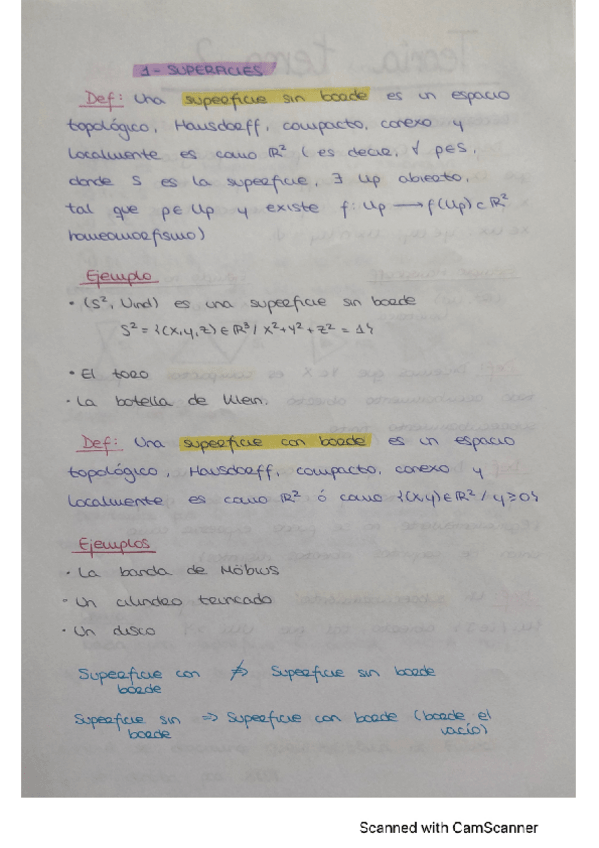 1- SUPERFICIES
Def: Una superficie sin borde es un espacio
topológico, Hausdorff, compacto, conexo y
localmente es como ℝ² (es decir, ∀ p∈S,
donde S es la superficie, ∃ Up abierto,
tal que p∈Up y existe f: Up ⟶ f(Up) ⊂ ℝ²
homeomorfismo)
Ejemplo
• (S², Uind) es una superficie sin borde
S² = {(x,y,z) ∈ ℝ³ / x² + y² + z² = 1}
• El toro
• La botella de Klein.
Def: Una superficie con borde es un espacio
topológico, Hausdorff, compacto, conexo y
localmente es como ℝ² ó como {(x,y) ∈ ℝ² / y ≥ 0}
Ejemplos
• La banda de Möbius
• Un cilindro truncado
• Un disco
Superficie con borde ⇏ Superficie sin borde
Superficie sin borde ⇒ Superficie con borde (borde el vacío)
Scanned with CamScanner